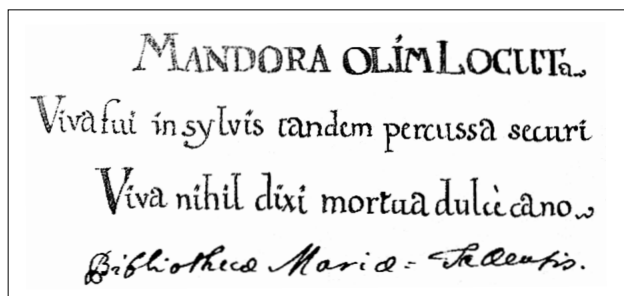 MANDORA OLÍM LOCUTa
Viva fui in sylvis tandem percussa securi
Viva nihil dixi mortua dulcè cano
Bibliothecæ Mariæ =